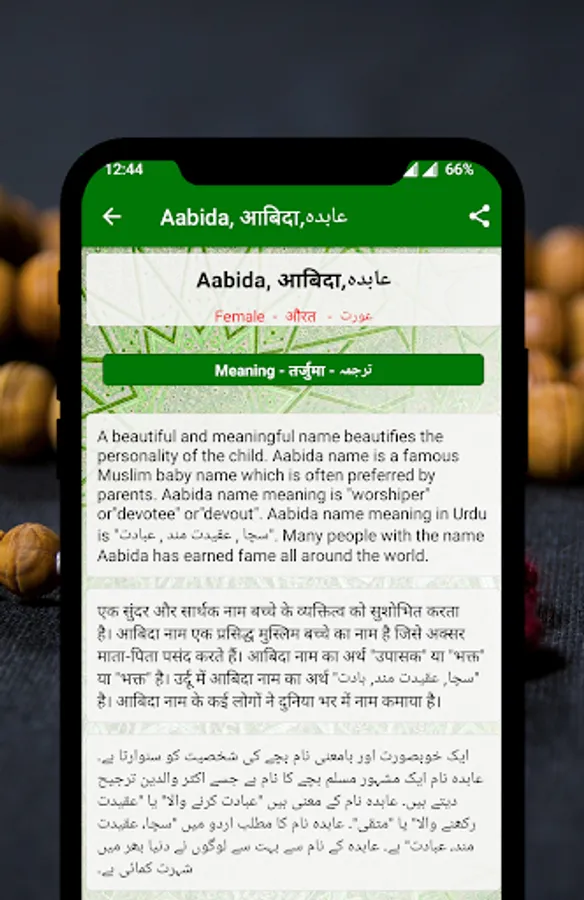 12:44 66%
Aabida, आबिदा,عابدہ
Aabida, आबिदा,عابدہ
Female - औरत - عورت
Meaning - तर्जुमा - ترجمہ
A beautiful and meaningful name beautifies the
personality of the child. Aabida name is a famous
Muslim baby name which is often preferred by
parents. Aabida name meaning is "worshiper"
or"devotee" or"devout". Aabida name meaning in Urdu
is "سچا , عقیدت مند , عبادت". Many people with the name
Aabida has earned fame all around the world.
एक सुंदर और सार्थक नाम बच्चे के व्यक्तित्व को सुशोभित करता
है। आबिदा नाम एक प्रसिद्ध मुस्लिम बच्चे का नाम है जिसे अक्सर
माता-पिता पसंद करते हैं। आबिदा नाम का अर्थ "उपासक" या "भक्त"
या "भक्त" है। उर्दू में आबिदा नाम का अर्थ "سچا, عقیدت مند, بادت"
है। आबिदा नाम के कई लोगों ने दुनिया भर में नाम कमाया है।
ایک خوبصورت اور بامعنی نام بچے کی شخصیت کو سنوارتا ہے۔
عابدہ نام ایک مشہور مسلم بچے کا نام ہے جسے اکثر والدین ترجیح
دیتے ہیں۔ عابدہ نام کے معنی ہیں "عبادت کرنے والا" یا "عقیدت
رکھنے والا" یا "متقی"۔ عابدہ نام کا مطلب اردو میں "سچا، عقیدت
مند، عبادت" ہے۔ عابدہ کے نام سے بہت سے لوگوں نے دنیا بھر میں
شہرت کمائی ہے۔